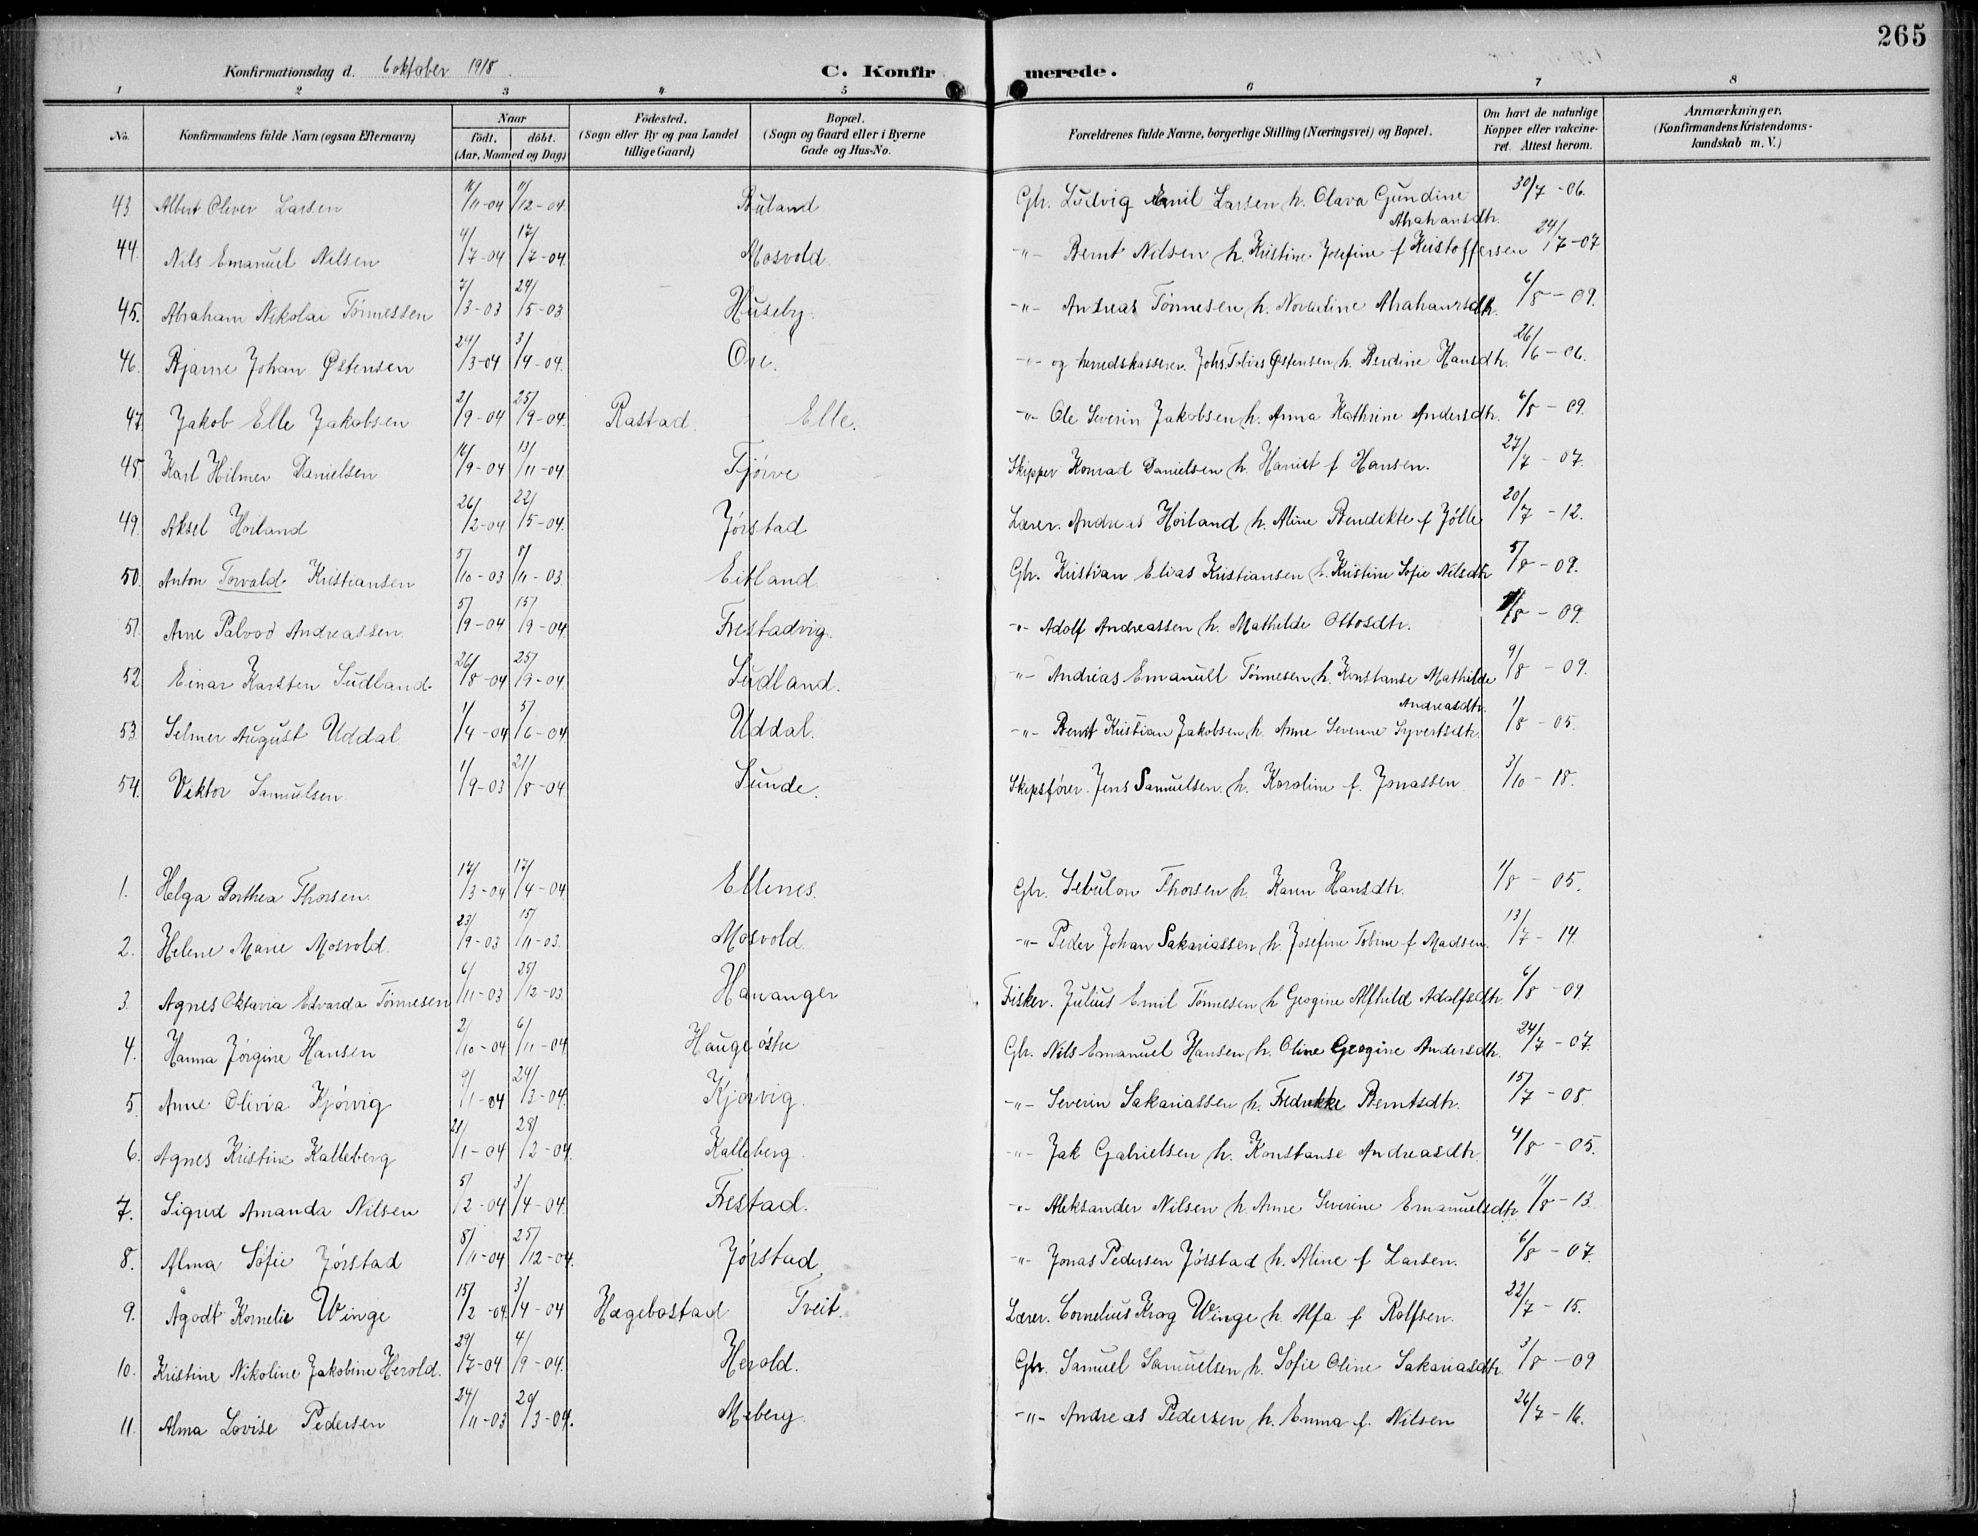 265
Konfirmationsdag d. 6 oktober 1918.
C. Konfirmerede.
1 2 3 4 5 6 7 8
No. Konfirmandens fulde Navn (ogsaa Efternavn) Naar født. døbt. (Aar, Maaned og Dag) Fødested. (Sogn eller By og paa Landet tillige Gaard) Bopæl. (Sogn og Gaard eller i Byerne Gade og Hus-No. Forældrenes fulde Navne, borgerlige Stilling (Næringsvei) og Bopæl. Om havt de naturlige Kopper eller vakcineret. Attest herom. Anmærkninger. (Konfirmandens Kristendomskundskab m. V.)
43. Albert Oliver Larsen 16/11-04 11/12-04. Buland Gbr. Ludvig Emil Larsen h. Olava Gundine Abrahamsdtr. 30/7-06.
44. Nils Emanuel Nilsen 4/7-04 17/7-04. Mosvold. -"- Bernt Nilsen h. Kristine Josefine f Kristoffersen 24/7-07
45. Abraham Nikolai Tønnessen 7/3-03 24/5-03 Huseby. -"- Andreas Tønnesen h. Norbeline Abrahamsdtr. 6/8-09.
46. Bjarne Johan Østensen 24/3-04 3/4-04. Ore. -"- og herredskasserer Johs. Tobias Østensen h. Berdine Hansdtr. 26/6-06.
47. Jakob Elle Jakobsen 2/9-04 25/9-04. Rastad. Elle. -"- Ole Severin Jakobsen h. Anna Kathrine Andersdtr. 6/8-09.
48. Karl Hilmer Danielsen 16/9-04 13/11-04. Tjørve Skipper Konrad Danielsen h. Hariet f Hansen. 27/7-07.
49. Aksel Høiland 26/2-04 22/5-04. Jørstad Lærer. Andreas Høiland h. Aline Bendikte f Jølle 20/7-12.
50. Anton Torvald Kristiansen 5/10-03 8/11-03. Eitland Gbr. Kristian Elias Kristiansen h. Kristine Sofie Nilsdtr 5/8-09.
51. Arne Palvod Andreassen. 5/9-04 15/9-04 Frestadvig. -"- Adolf Andreassen h. Mathilde Ottosdtr. /8-09.
52. Einar Karsten Sudland. 26/8-04 25/9-04. Sudland. -"- Andreas Emanuel Tønnesen h. Konstanse Mathilde Andreasdtr. 9/8-09.
53. Selmer August Uddal 1/4-04 5/6-04 Uddal. -"- Bernt Kristian Jakobsen h. Anne Severine Syvertsdtr. 1/8-05.
54. Viktor Samuelsen 1/9-03 21/8-04 Sunde. Skipsfører. Jens Samuelsen. h. Karoline f. Jonassen 3/10-18.
1. Helga Dorthea Thorsen. 17/3-04 17/4-04 Ellenes. Gbr. Sebulon Thorsen h. Karen Hansdtr. 1/8-05.
2. Helene Marie Mosvold. 23/9-03 15/11-03. Mosvold. -"- Peder Johan Sakariassen h. Josefine Tobine f Madsen. 13/7-14.
3. Agnes Oktavia Edvarda Tønnesen 6/11-03 25/12-03. Hananger Fisker. Julius Emil Tønnesen h Georgine Alfhild Adolfsdtr. 6/8-09.
4. Hanna Jørgine Hansen 2/10-04 6/11-04. Hauge østre Gbr. Nils Emanuel Hansen h. Oline Georgine Andersdtr. 24/7-07.
5. Anne Olivia Kjørvig 9/1-04 24/3-04. Kjørvig. -"- Severin Sakariassen h. Fredrikke Berntsdtr. 15/7-08.
6. Agnes Kristine Kalleberg 21/1-04 28/2-04. Kalleberg. -"- Jak Gabrielsen h. Konstanse Andreasdtr. 4/8-05.
7. Sigrid Amanda Nilsen 5/2-04 3/4-04. Frestad. -"- Aleksander Nilsen h. Anne Severine Emanuelsdtr. 11/8-13.
8. Alma Sofie Jørstad 8/11-04 25/12-04. Jørstad -"- Jonas Pedersen Jørstad h. Aline f Larsen. 6/8-07.
9. Agodt Kornelie Winge 15/2-04 3/4-04 Hægebostad Tveit. Lærer. Cornelius Krog Winge h. Alfa f Rolfsen. 22/7-15.
10. Kristine Nikoline Jakobine Herold. 29/7-04 4/9-04. Herold. Gbr. Samuel Samuelsen h. Sofie Oline Sakariasdtr. 3/8-09
11. Alma Lovise Pedersen 24/11-03 20/3-04. Meberg. -"- Andreas Pedersen h. Emma f. Nilsen 26/7-16.